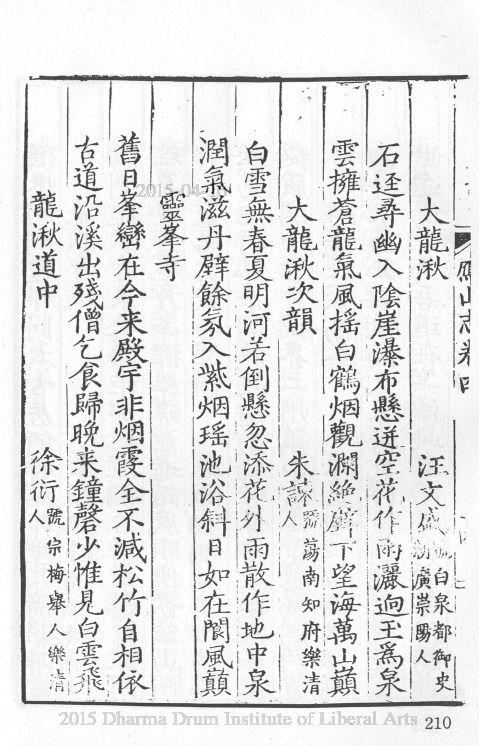 鴈山志卷四
大龍湫 汪文盛號白泉都御史湖廣崇陽人
石逕尋幽入陰崖瀑布懸迸空花作雨灑迥玉為泉
雲擁蒼龍氣風搖白鶴烟觀瀾絶磴下望海萬山巔
大龍湫次韻 朱諫號蕩南知府樂清人
白雪無春夏明河若倒懸忽添花外雨散作地中泉
潤氣滋丹壁餘氛入紫烟瑶池浴斜日如在閬風巔
靈峯寺
舊日峯巒在今来殿宇非烟霞全不減松竹自相依
古道沿溪出殘僧乞食歸晩来鐘磬少惟見白雲飛
龍湫道中 徐衍號宗梅舉人樂清人
2015-04
2015 Dharma Drum Institute of Liberal Arts
210